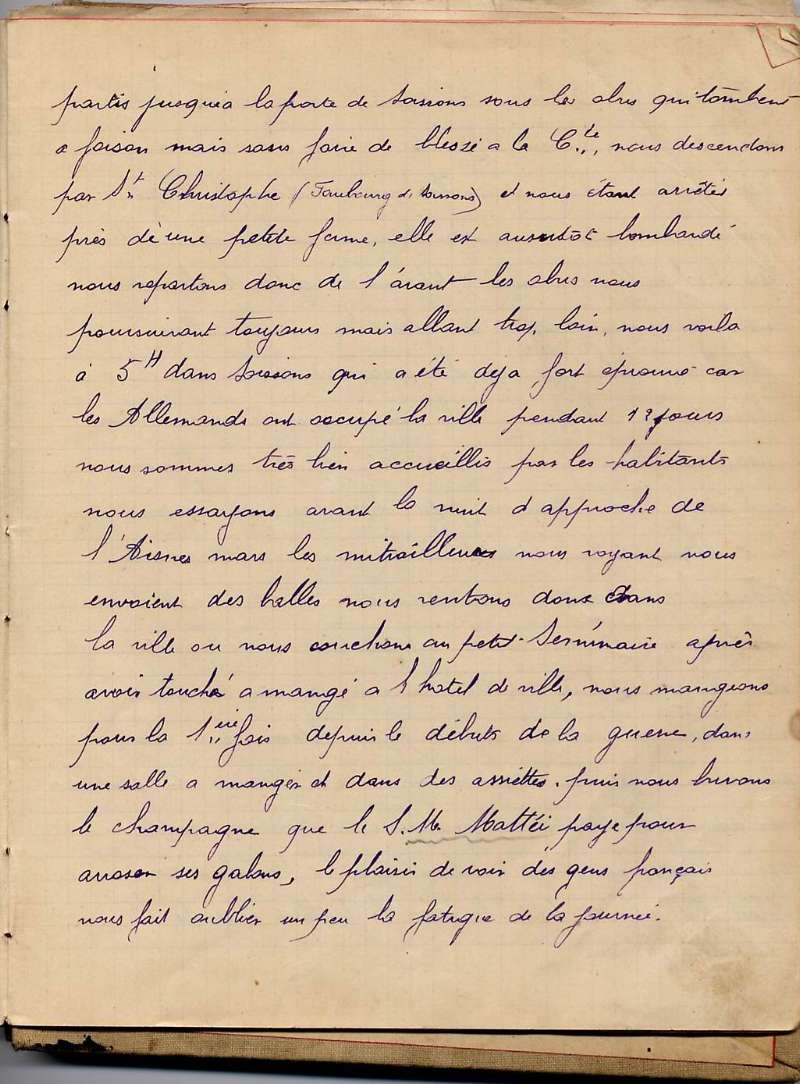 partis jusqu'a la porte de Soissons sous les obus qui tombent
a foison mais sans faire de blessé a la Cie, nous descendons
par St Christophe (Faubourg de Soissons) et nous étant arrêtés
près de une petite ferme, elle est aussitôt bombardé
nous repartons donc de l'avant les obus nous
poursuivant toujours mais allant trop loin, nous voila
à 5H dans Soissons qui a été deja fort éprouvé car
les Allemands ont occupé la ville pendant 12 jours
nous sommes très bien accueillis par les habitants
nous essayons avant la nuit d'approche de
l'Aisnes mais les mitrailleuses nous voyant nous
envoient des balles nous rentrons donc dans
la ville ou nous couchons au petit-Seminaire après
avoir touché a mangé a l'hotel de ville, nous mangeons
pour la 1ière fois depuis le débuts de la guerre, dans
une salle a manger et dans des assiettes. puis nous buvons
le champagne que le S. Mr Mattéi paye pour
arroser ses galons, le plaisir de voir des gens français
nous fait oublier un peu la fatigue de la journée.